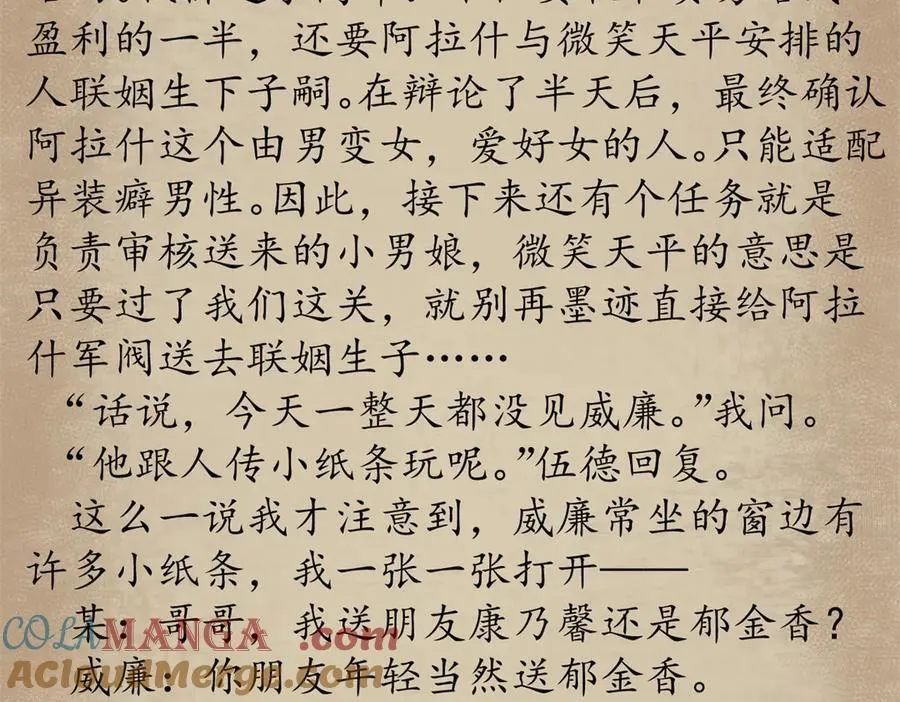 盈利的一半，还要阿拉什与微笑天平安排的
人联姻生下子嗣。在辩论了半天后，最终确认
阿拉什这个由男变女，爱好女的人。只能适配
异装癖男性。因此，接下来还有个任务就是
负责审核送来的小男娘，微笑天平的意思是
只要过了我们这关，就别再墨迹直接给阿拉
什军阀送去联姻生子……
“话说，今天一整天都没见威廉。”我问。
“他跟人传小纸条玩呢。”伍德回复。
这么一说我才注意到，威廉常坐的窗边有
许多小纸条，我一张一张打开——
某：哥哥，我送朋友康乃馨还是郁金香？
COLAMANGA.com
威廉：你朋友年轻当然送郁金香。
AcloudMerge.com